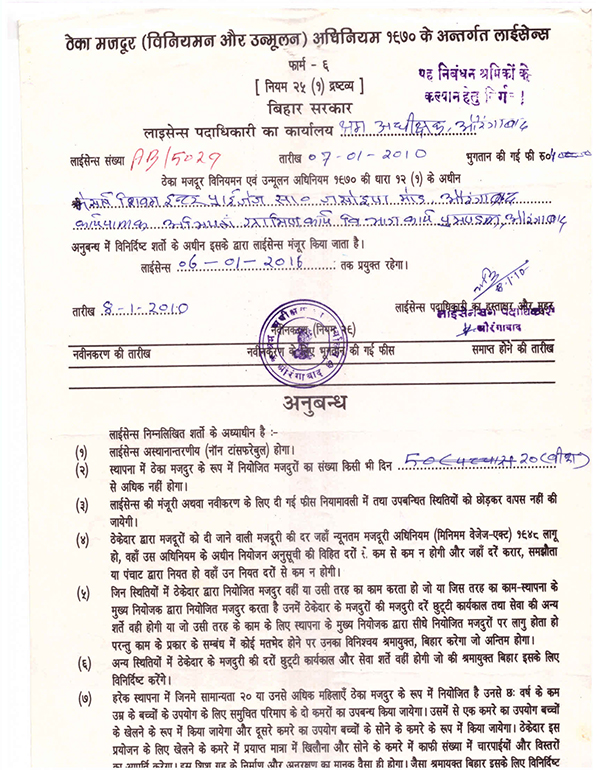 ठेका मजदूर (विनियमन और उन्मूलन) अधिनियम १९७० के अन्तर्गत लाईसेन्स
फार्म - ६
[ नियम २५ (१) द्रष्टव्य ]
यह निबंधन श्रमिकों के
कल्याण हेतु निर्गत !
बिहार सरकार
लाइसेन्स पदाधिकारी का कार्यालय श्रम अधीक्षक, औरंगाबाद
लाईसेन्स संख्या AB/5029 तारीख 07-01-2010 भुगतान की गई फी रु०
ठेका मजदूर विनियमन एवं उन्मूलन अधिनियम १९७० की धारा १२ (१) के अधीन
मेसर्स शिवम इन्टर प्राईजेज सा० जसोइया मोड़ औरंगाबाद
कार्यपालक अभियंता ग्रामीण कार्य विभाग कार्य प्रमण्डल, औरंगाबाद
अनुबन्ध में विनिर्दिष्ट शर्तो के अधीन इसके द्वारा लाईसेन्स मंजूर किया जाता है।
लाईसेन्स 06-01-2016 तक प्रयुक्त रहेगा।
8.1.10
तारीख 8-1-2010 लाईसेन्स पदाधिकारी का हस्ताक्षर और मुहर
लाईसेंसिंग पदाधिकारी
औरंगाबाद
नवीनकरण (नियम २९)
नवीनकरण की तारीख नवीनकरण के लिए भुगतान की गई फीस समाप्त होने की तारीख
औरंगाबाद
अनुबन्ध
लाईसेन्स निम्नलिखित शर्तो के अध्याधीन है :-
(१) लाईसेन्स अस्थानान्तरणीय (नॉन टांसफरेबुल) होगा।
(२) स्थापना में ठेका मजदुर के रूप में नियोजित मजदुरों का संख्या किसी भी दिन 20 (बीस)
से अधिक नहीं होगा।
(३) लाईसेन्स की मंजूरी अथवा नवीकरण के लिए दी गई फीस नियामावली में तथा उपबन्धित स्थितियों को छोड़कर वापस नहीं की
जायेगी।
(४) ठेकेदार द्वारा मजदुरों को दी जाने वाली मजदुरी की दर जहाँ न्यूनतम मजदूरी अधिनियम (मिनिमम वेजेज-एक्ट) १६४८ लागू
हो, वहाँ उस अधिनियम के अधीन नियोजन अनुसूची की विहित दरों से कम से कम न होगी और जहाँ दरें करार, समझौता
या पंचाट द्वारा नियत हो वहाँ उन नियत दरों से कम न होगी।
(५) जिन स्थितियों में ठेकेदार द्वारा नियोजित मजदुर वहीं या उसी तरह का काम करता हो जो या जिस तरह का काम-स्थापना के
मुख्य नियोजक द्वारा नियोजित मजदुर करता है उनमें ठेकेदार के मजदुरों की मजदुरी दरें छुट्टी कार्यकाल तथा सेवा की अन्य
शर्ते वही होगी या जो उसी तरह के काम के लिए स्थापना के मुख्य नियोजक द्वारा सीधे नियोजित मजदुरों पर लागु होता हो
परन्तु काम के प्रकार के सम्बंध में कोई मतभेद होने पर उनका विनिश्चय श्रमायुक्त, बिहार करेगा जो अन्तिम होगा।
(६) अन्य स्थितियों में ठेकेदार के मजदुरी की दरें छुट्टी कार्यकाल और सेवा शर्ते वही होगी जो की श्रमायुक्त बिहार इसके लिए
विनिर्दिष्ट करेंगे।
(७) हरेक स्थापना में जिनमे सामान्यता २० या उनसे अधिक महिलाएँ ठेका मजदुर के रूप में नियोजित है उनसे छः वर्ष के कम
उम्र के बच्चों के उपयोग के लिए समुचित परिमाप के दो कमरों का उपबन्ध किया जायेगा। उसमें से एक कमरे का उपयोग बच्चों
के खेलने के रूप में किया जायेगा और दूसरे कमरे का उपयोग बच्चों के सोने के कमरे के रूप में किया जायेगा। ठेकेदार इस
प्रयोजन के लिए खेलने के कमरे में प्रयाप्त मात्रा में खिलौना और सोने के कमरे में काफी संख्या में चारपाईयों और विस्तरों
का आपूर्ति करेगा। इस शिशु गृह के निर्माण और अनुरक्षण का मानक वैसा ही होगा। जैसा श्रमायुक्त बिहार इसके लिए विनिर्दिष्ट